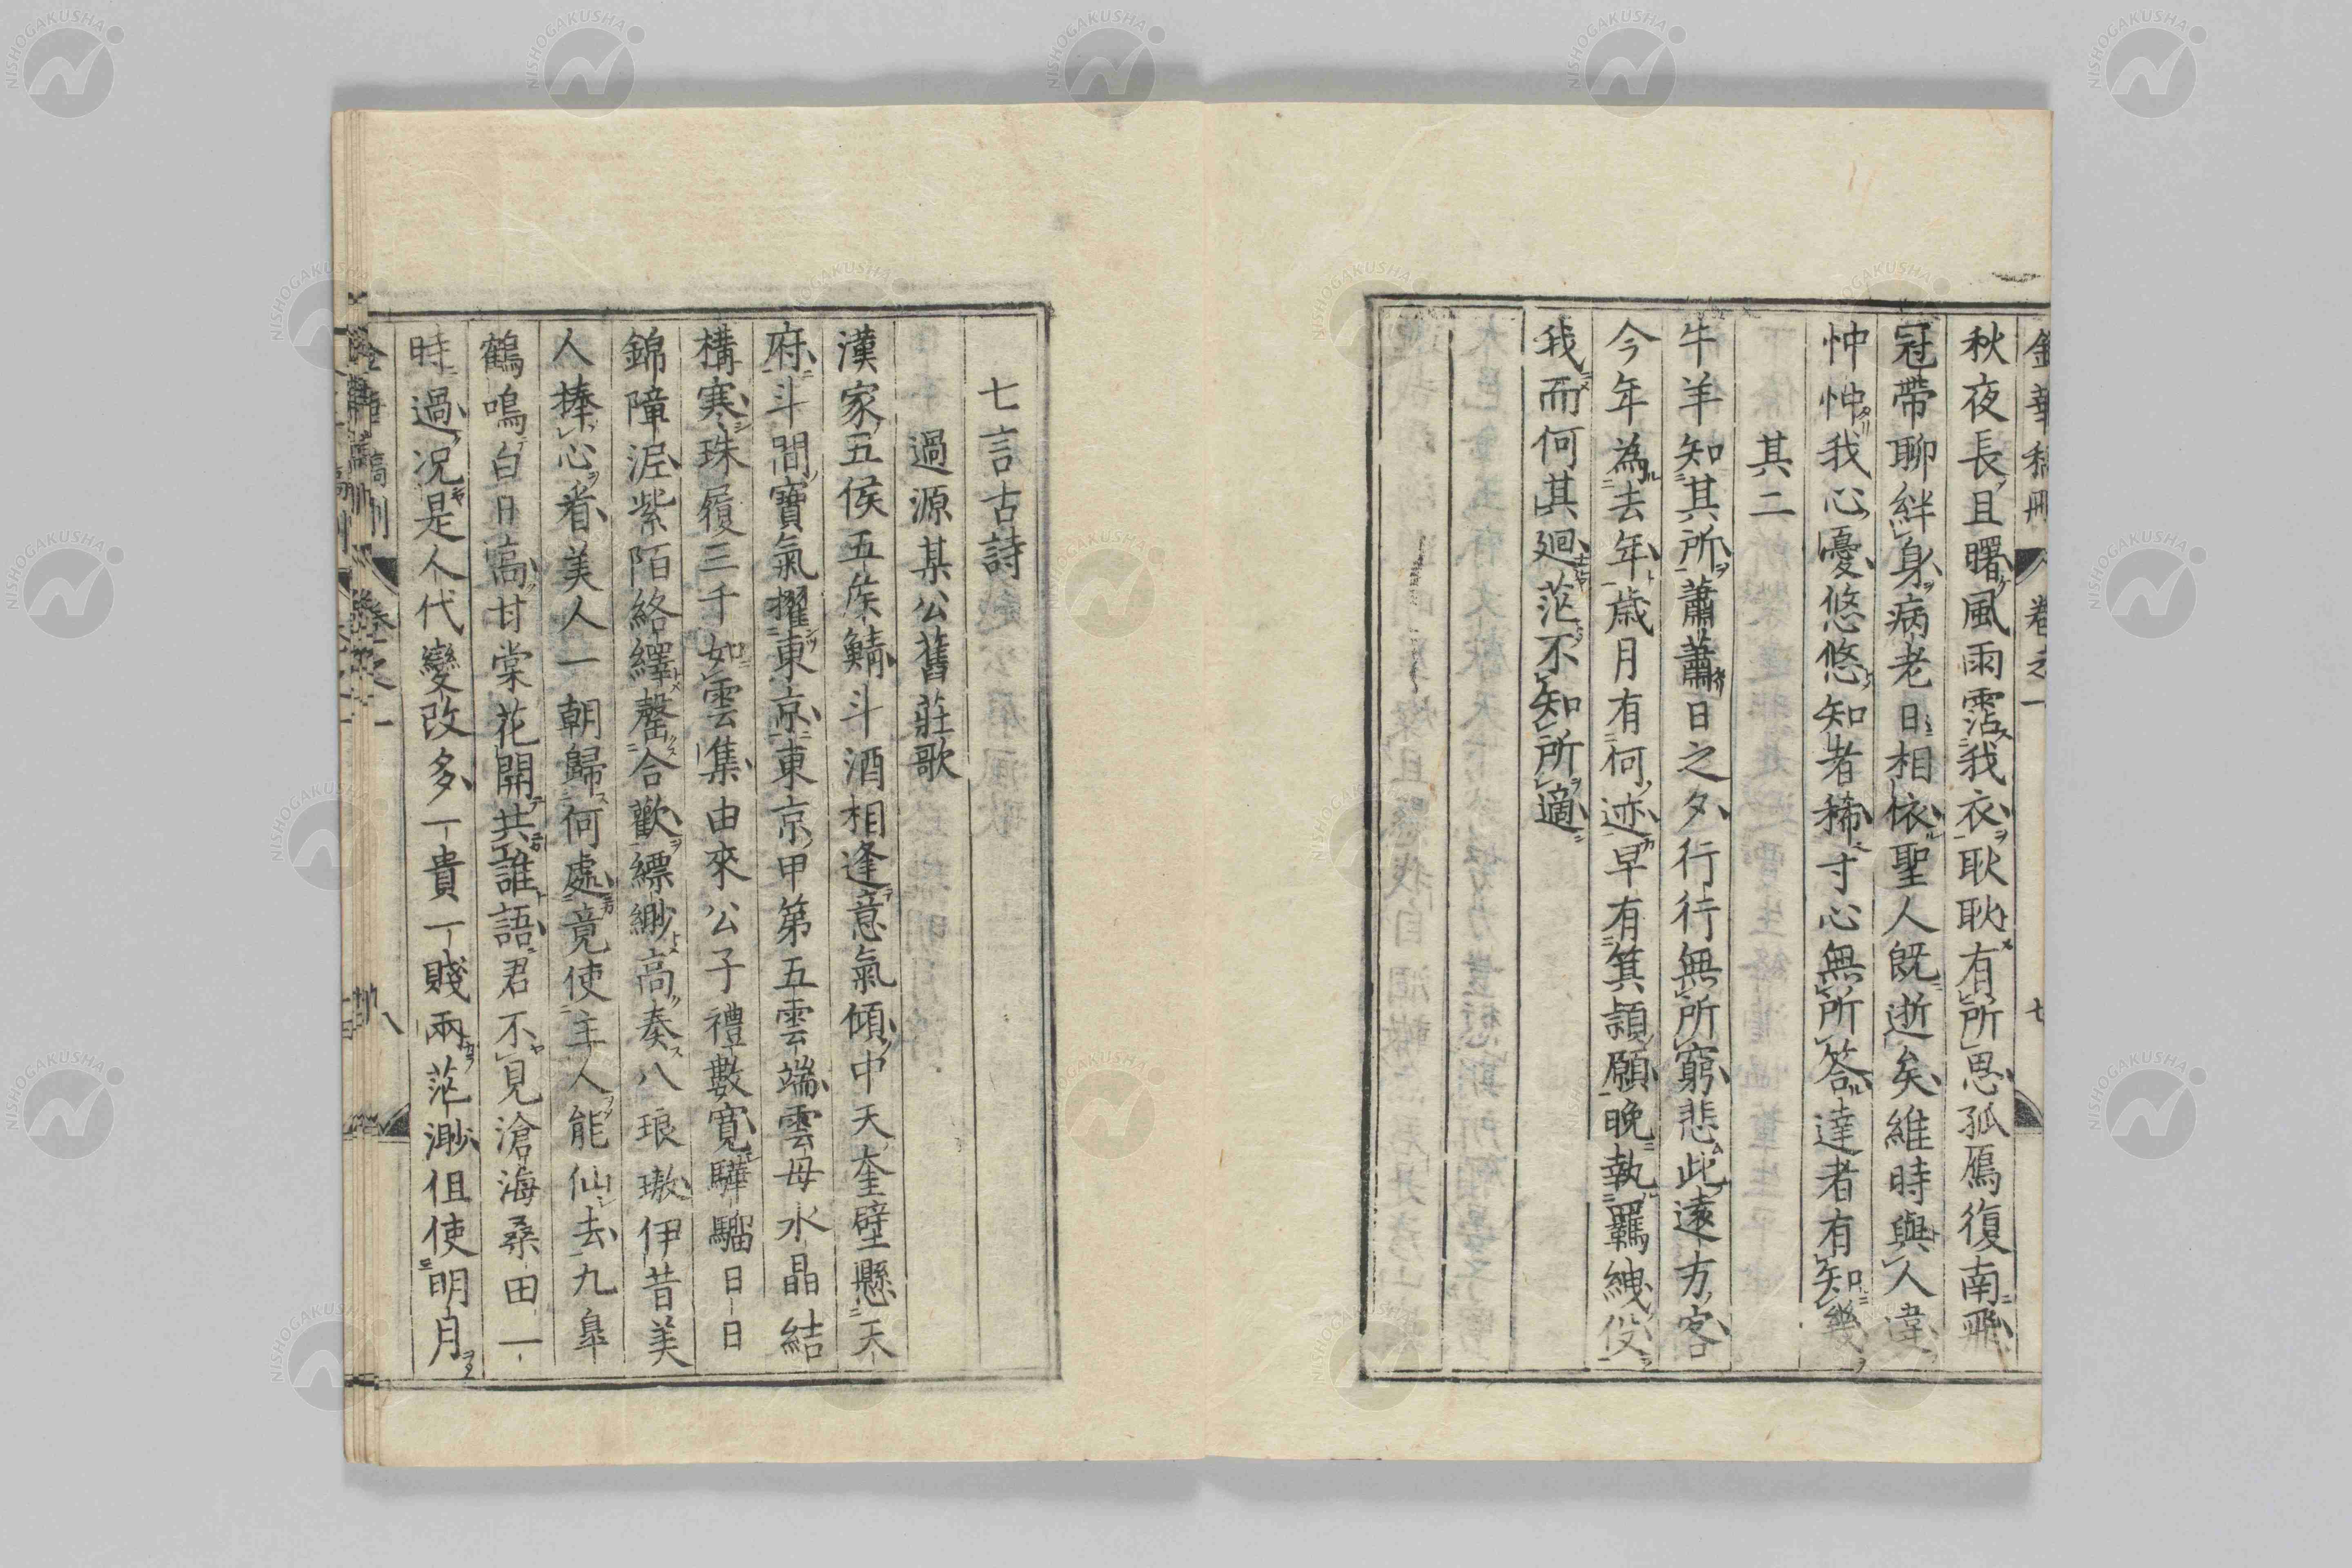 秋夜長且曙風雨霑我衣耿耿有所思孤鴈復南飛
冠帶聊絆身病老日相依聖人既逝矣維時與人違
忡忡我心憂悠悠知者稀寸心無所答達者有知幾
其二
牛羊知其所蕭蕭日之夕行行無所窮悲此遠方客
今年為去年歲月有何迹早有箕潁願晚執羈絏役
我而何其廻茫不知所適
七言古詩
過源某公舊莊歌
漢家五侯五侯鯖斗酒相逢意氣傾中天奎壁懸天
府斗間寶氣擢東京東京甲第五雲端雲母水晶結
構寒珠履三千如雲集由來公子禮數寬驊騮日日
錦障泥紫陌絡繹罄合歡縹緲高奏八琅璈伊昔美
人捧心看美人一朝歸何處竟使主人能仙去九皐
鶴鳴白日高甘棠花開共誰語君不見滄海桑田一
時過況是人代變改多一貴一賤兩茫渺但使明月